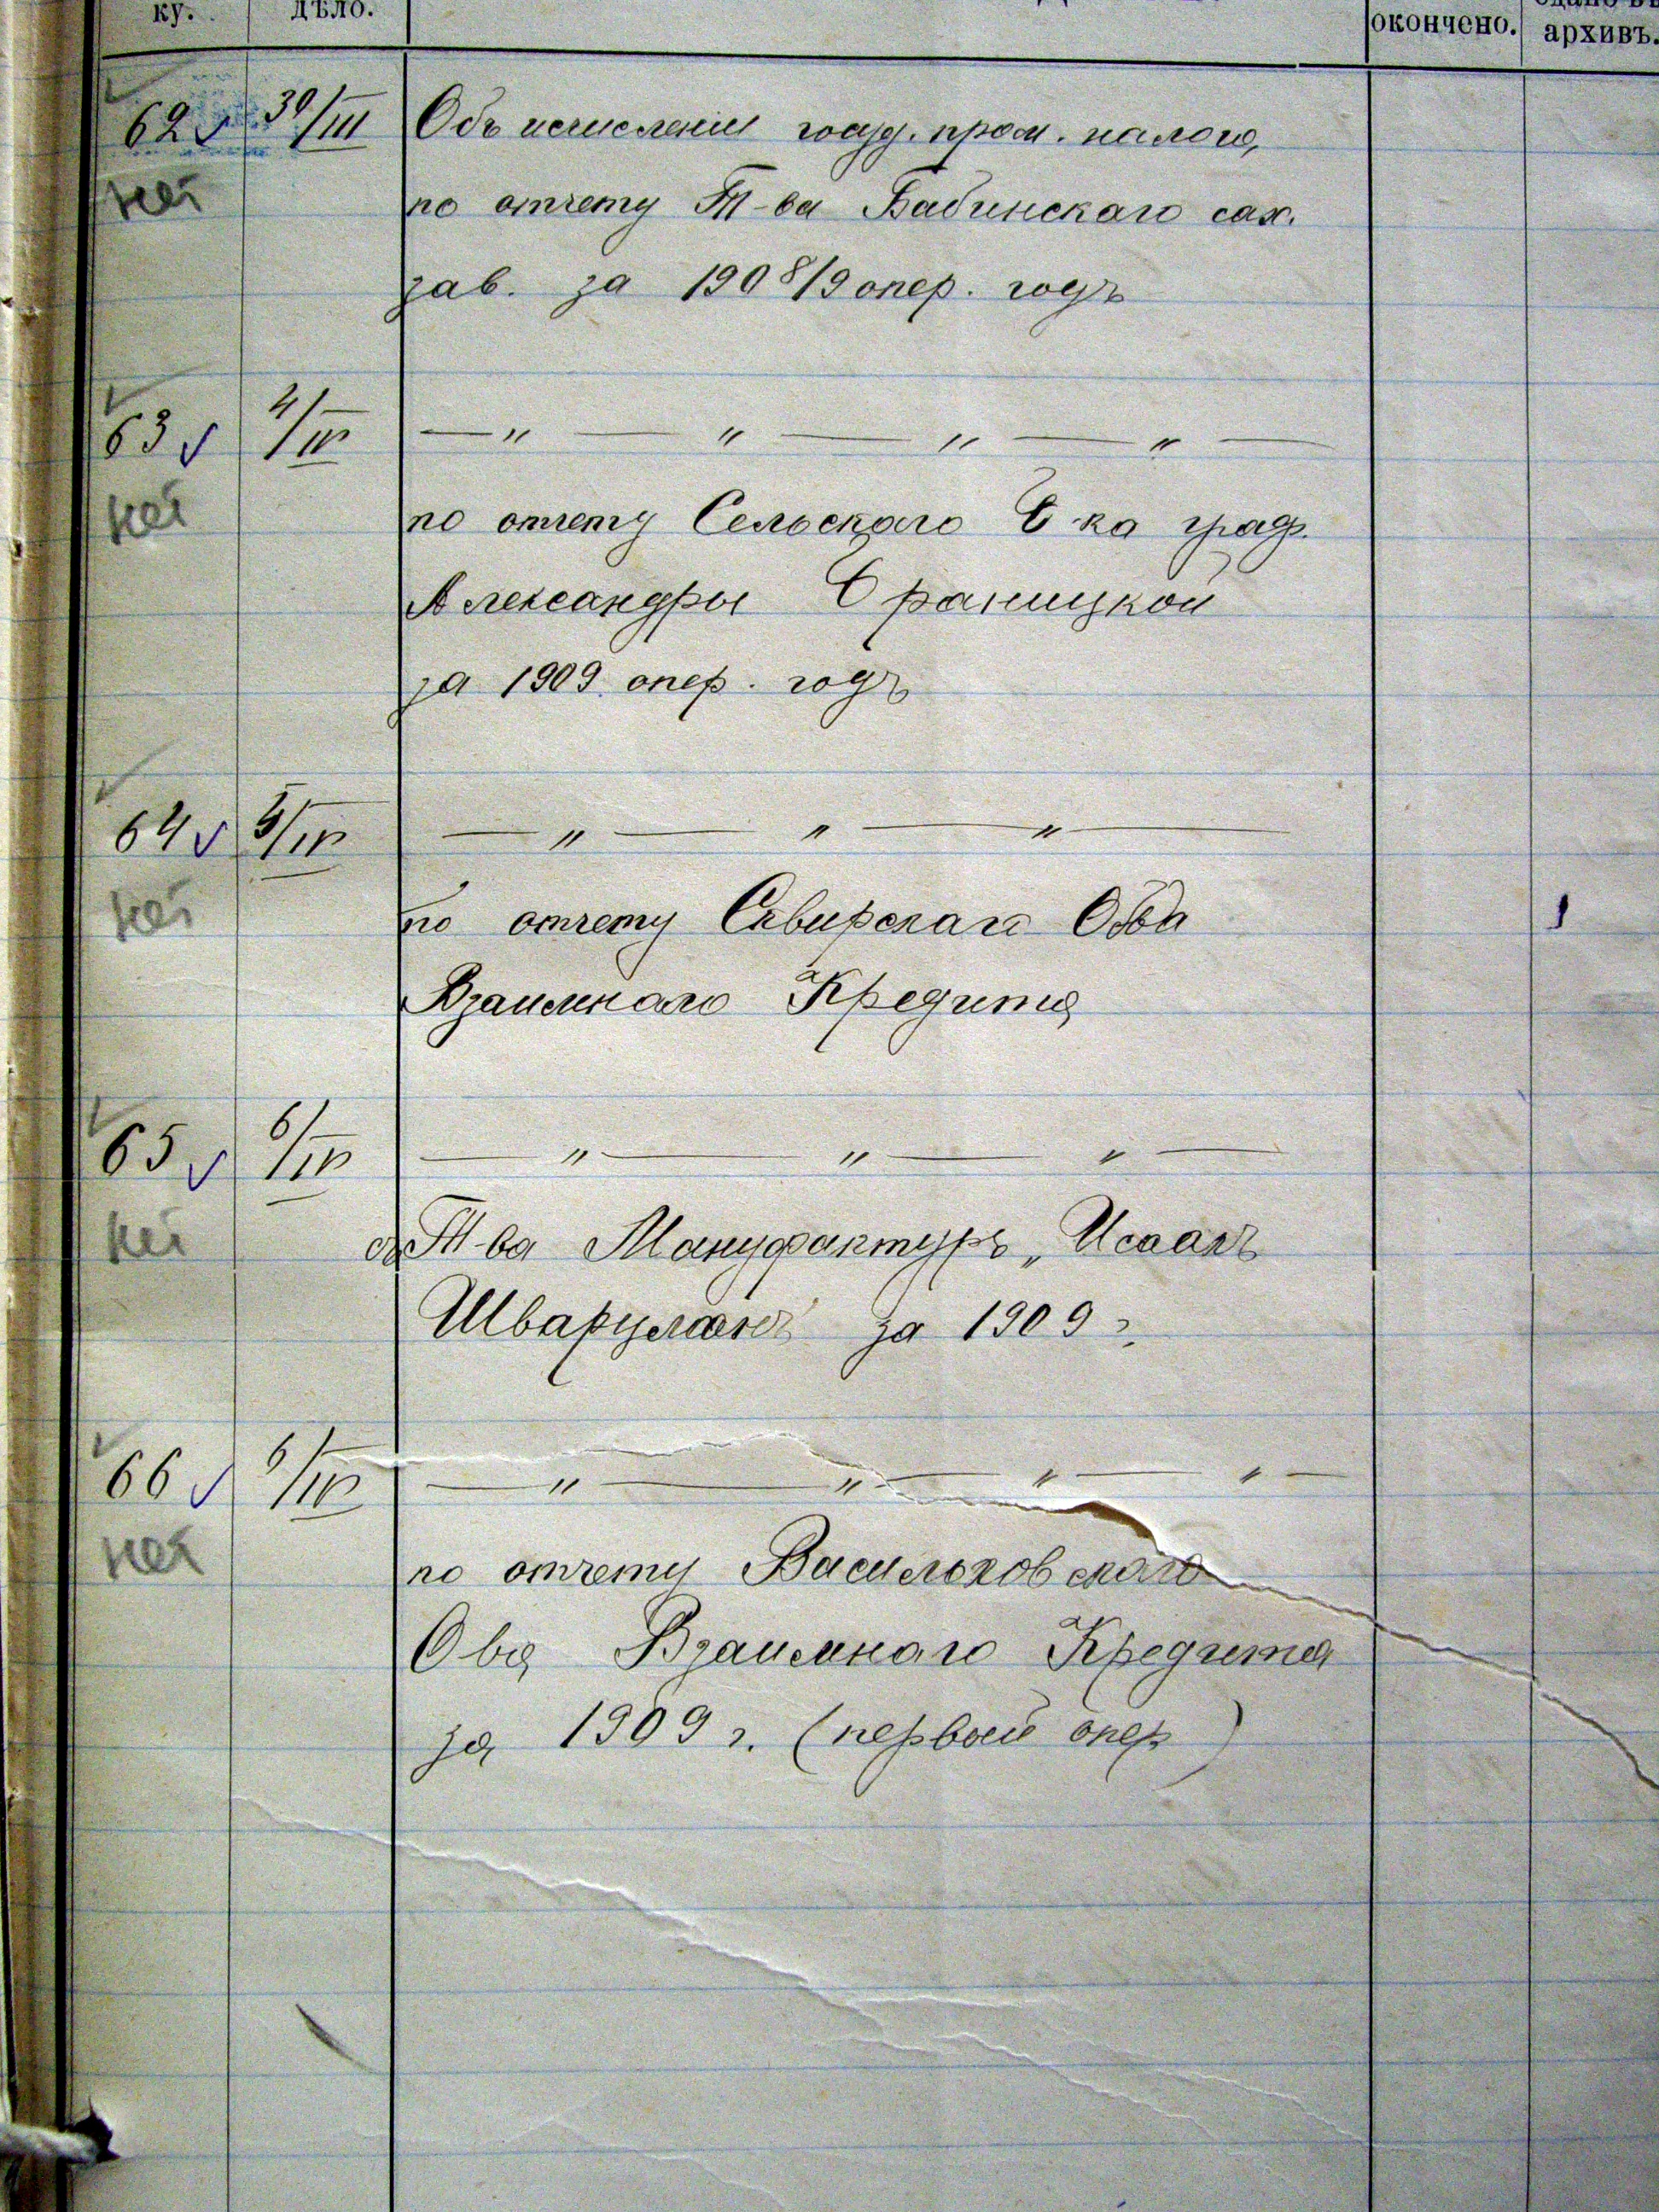 ку. дѣло. окончено. архивъ.
62 30/III Объ исчисленіи госуд. пром. налога,
нет по отчету Т-ва Бабинскаго сах.
зав. за 1908/9 опер. годъ
63 4/IV — " — " — " — " —
нет по отчету Сельскаго Б-ка граф.
Александры Браницкой
за 1909 опер. годъ
64 5/IV — " — " — " —
нет по отчету Сквирскаго О-ва
Взаимнаго Кредита
65 6/IV — " — " — " —
нет Т-ва Мануфактуръ „Исаакъ
Шварцманъ" за 1909 г.
66 6/IV — " — " — " — " —
нет по отчету Васильковскаго
О-ва Взаимнаго Кредита
за 1909 г. (первый опер)